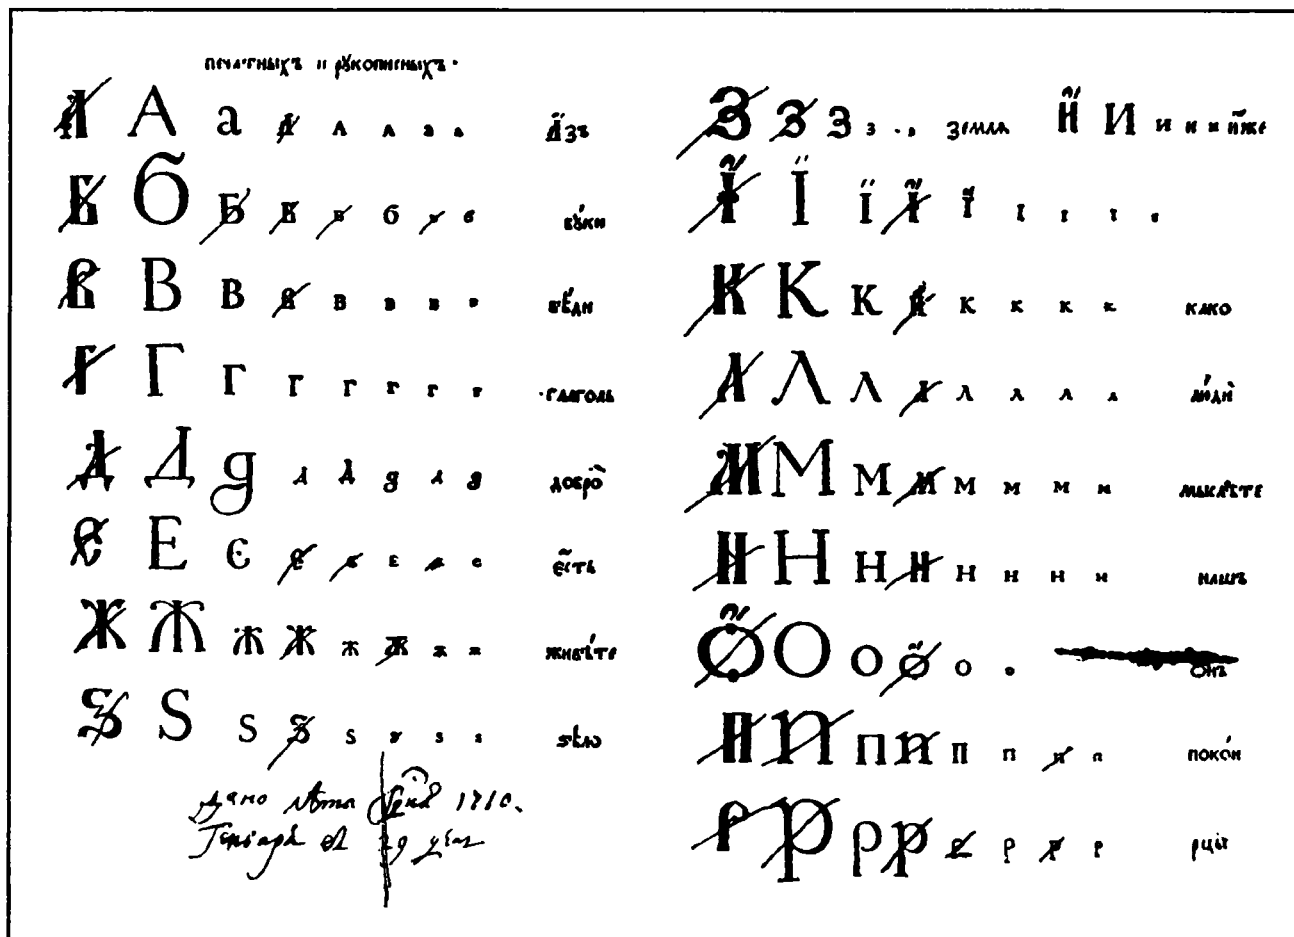 печатныхъ и рꙋкописныхъ.
А А а А А А а а а́зъ
Б Б Б Б Б б б б бꙋ́ки
В В В В В В в в в вѣ́ди
Г Г Г Г Г Г Г г глаголь
Д Д д д д д д д добро̀
Є Е Є є є є є є є҆сть
Ж Ж Ж Ж Ж Ж ж ж живѣ́те
Ѕ Ѕ Ѕ Ѕ Ѕ ѕ ѕ ѕ ѕѣло̀
дано лѣта 1710.
Генваря 29 дня
З З З з з з земля И И и и и и҆́же
І Ї ї Ї ї ї ї ї ї
К К К К К К К к како
Л Л Л Л Л Л л л лю́дїѐ
М М М М М М м м мыслѣ́те
Н Н Н Н Н Н н н нашъ
О О О О О о онъ
П П П П П п п п поко́й
Р Р Р Р р р р р рцы̀